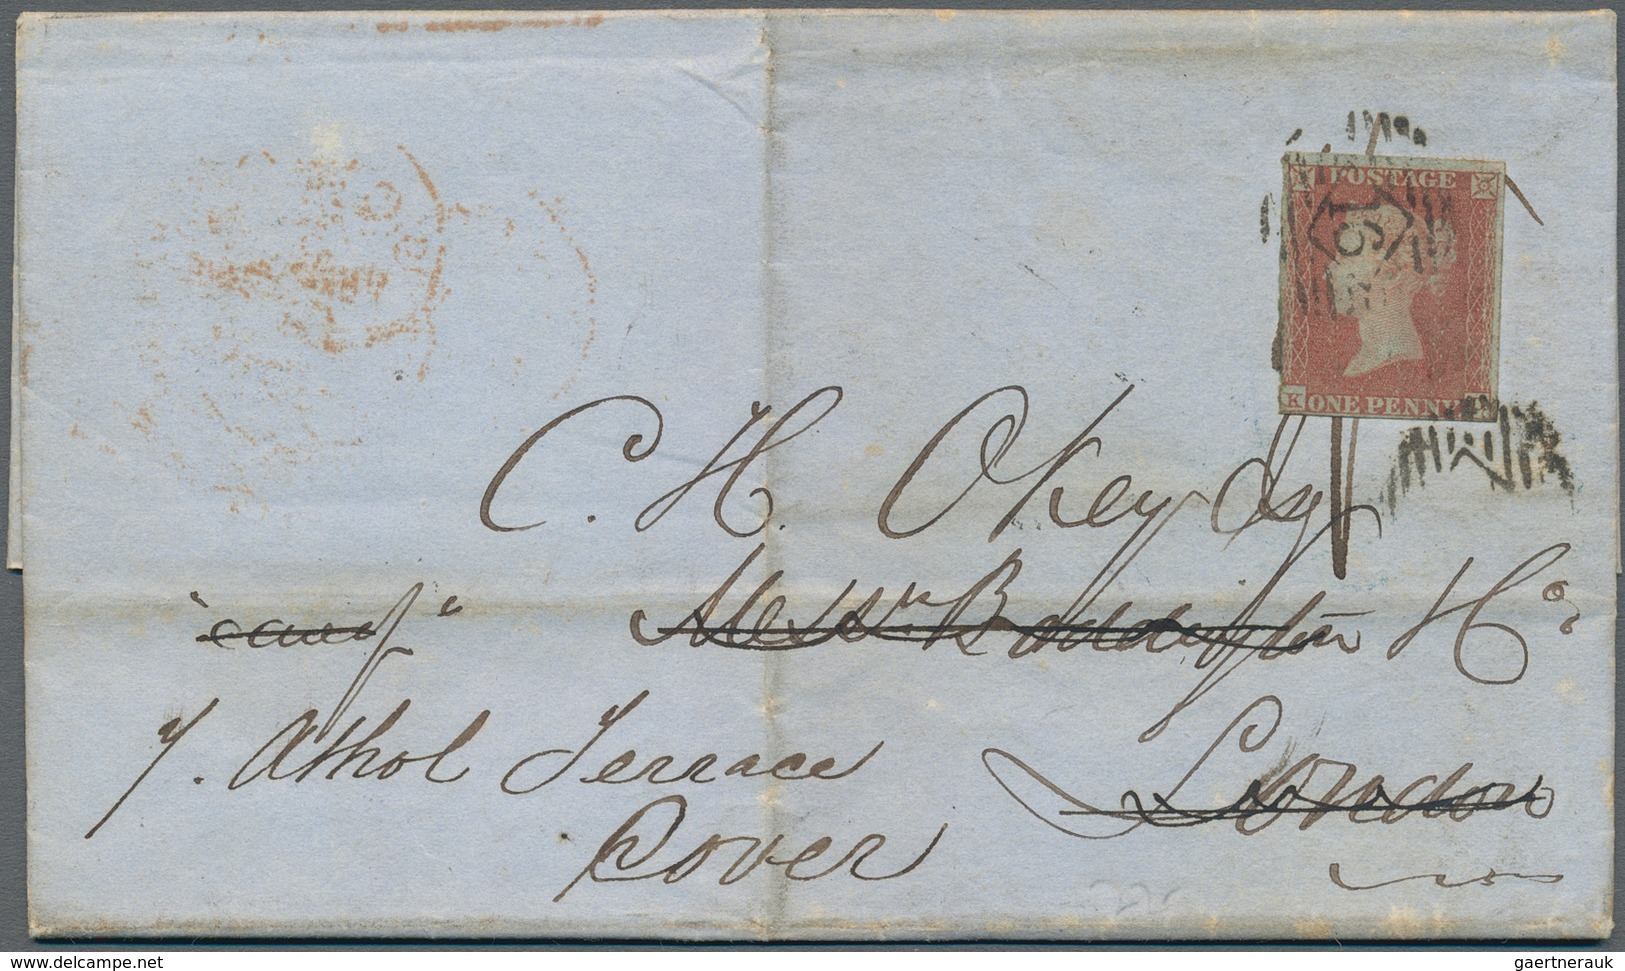 POSTAGE
15
K ONE PENNY
C. H. Okey Esq
"care of" Messrs Boddington & Co
London
7. Athol Terrace
Dover
www.delcampe.net
gaertnerauk